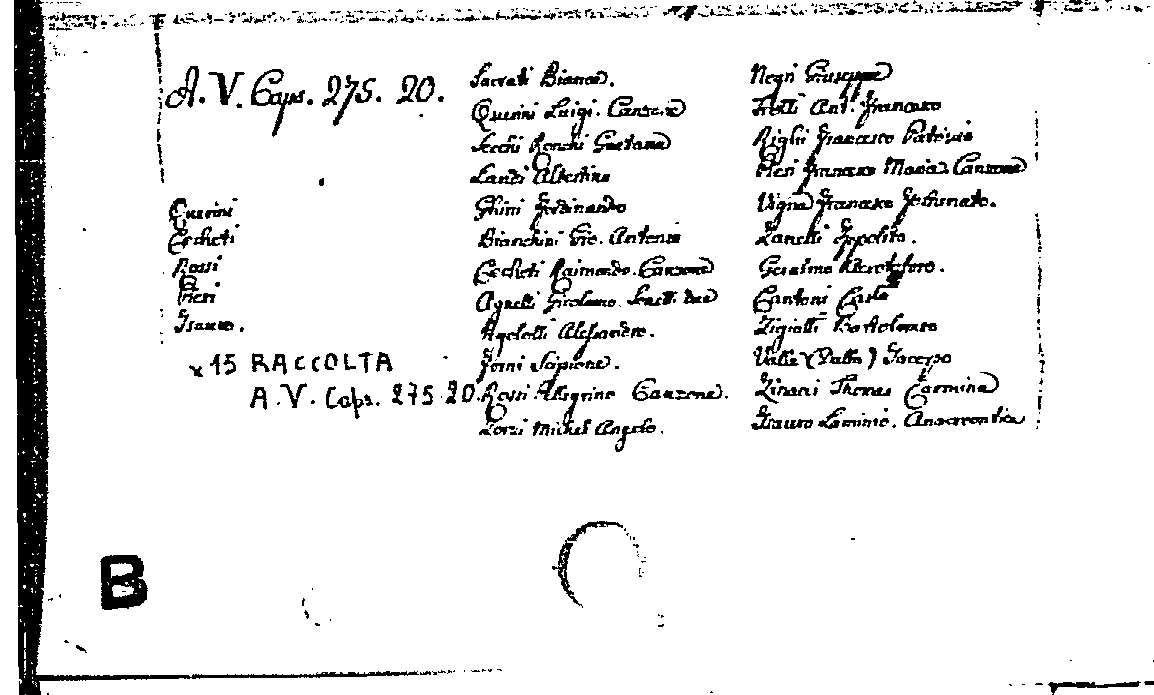 A. V. Caps. 275. 20.
Querini
Cecheti
Rossi
Pieri
Isauro.
x 15 RACCOLTA
A. V. Caps. 275 20.
Sacrati Bianca.
Querini Luigi. Canzone
Secchi Ronchi Gaetana
Landi Albertino
Ghini Ferdinando
Bianchini Gio. Antonio
Cecheti Raimondo. Canzone
Agnelli Girolamo. Sonetti due
Agolelli Alessandro.
Forni Scipione.
Rossi Pellegrino Canzone.
Zorzi Michel Angelo.
Negri Giuseppe
Ant. Francesco
Righi Francesco Patrizio
Pieri Francesco Maria. Canzone
Vigna Francesco Fortunato.
Zanelli Ippolito.
Geralmo
Cantoni Carlo
Zigiotti Bartolomeo
Valle (Dalla) Jacopo
Zinani Thomas Carmina
Isauro Laminio. Anacreontica
B